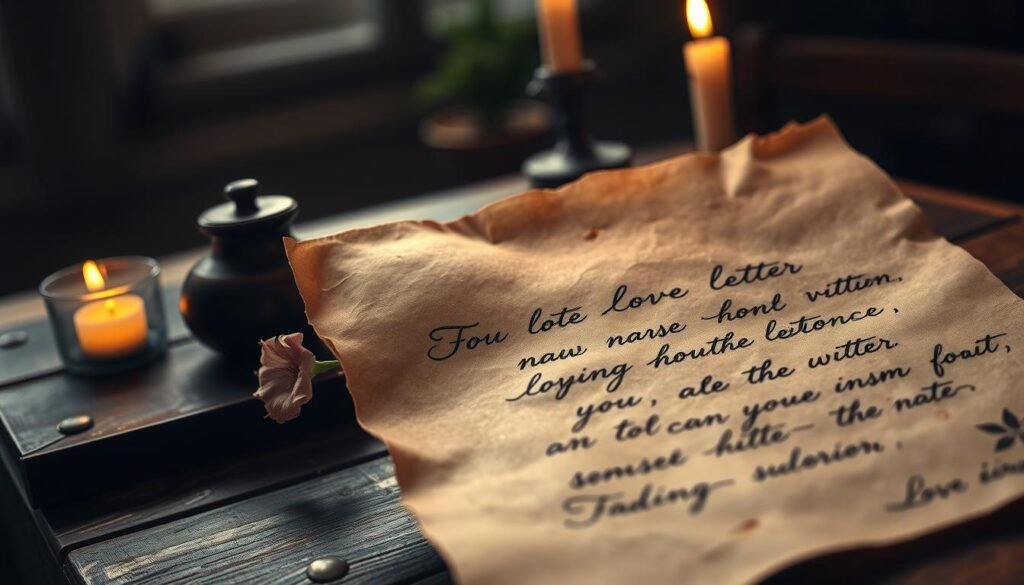 Fou lote love letter
naw narse hont vittun.
loying houthe leitonce,
you, ale the witter
an tol can youe insm foait,
semset hitte the nate
Fading sulorion.
Love